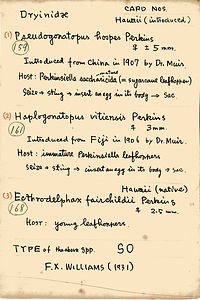 Dryinidæ
CARD NOS.
Hawaii (introduced)
(1) Pseudogonatopus hospes Perkins
(159) ♀ ± 5 mm.
Introduced from China in 1907 by Dr. Muir.
Host: Perkinsiella saccharicida (= sugarcane leafhopper)
Seize → sting → insert an egg in its body → sac.
(2) Haplogonatopus vitiensis Perkins
(161) ♀ 3 mm.
Introduced from Fiji in 1906 by Dr. Muir.
Host: immature Perkinsiella leafhoppers
Seize → sting → insert an egg in its body → sac.
Hawaii (native)
(3) Ecthrodelphax fairchildii Perkins
(168) ♀ 2.5 mm.
Host: young leafhoppers.
TYPE of Hawaiian spp. SO
F.X. WILLIAMS (1931)